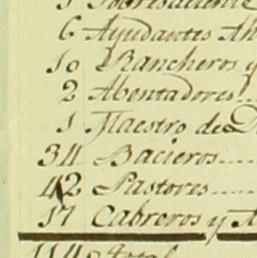 6 Ayudantes
10 Rancheros y
2 Abentadores
1 Maestro de
34 Bacieros....
42 Pastores....
17 Cabreros y
114 Total